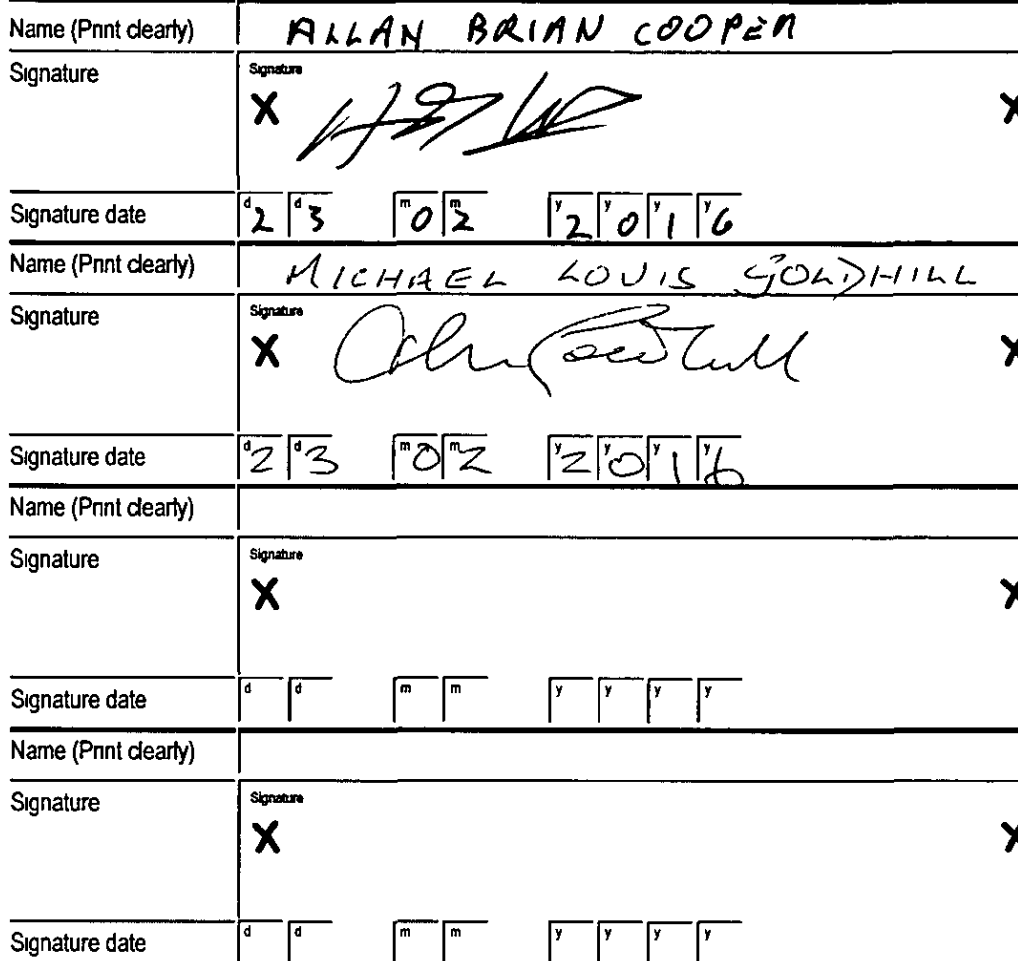 Name (Print clearly) ALLAN BRIAN COOPER
Signature Signature
X X
Signature date d2 d3 m0 m2 y2 y0 y1 y6
Name (Print clearly) MICHAEL LOUIS GOLDHILL
Signature Signature
X X
Signature date d2 d3 m0 m2 y2 y0 y1 y6
Name (Print clearly)
Signature Signature
X X
Signature date d d m m y y y y
Name (Print clearly)
Signature Signature
X X
Signature date d d m m y y y y